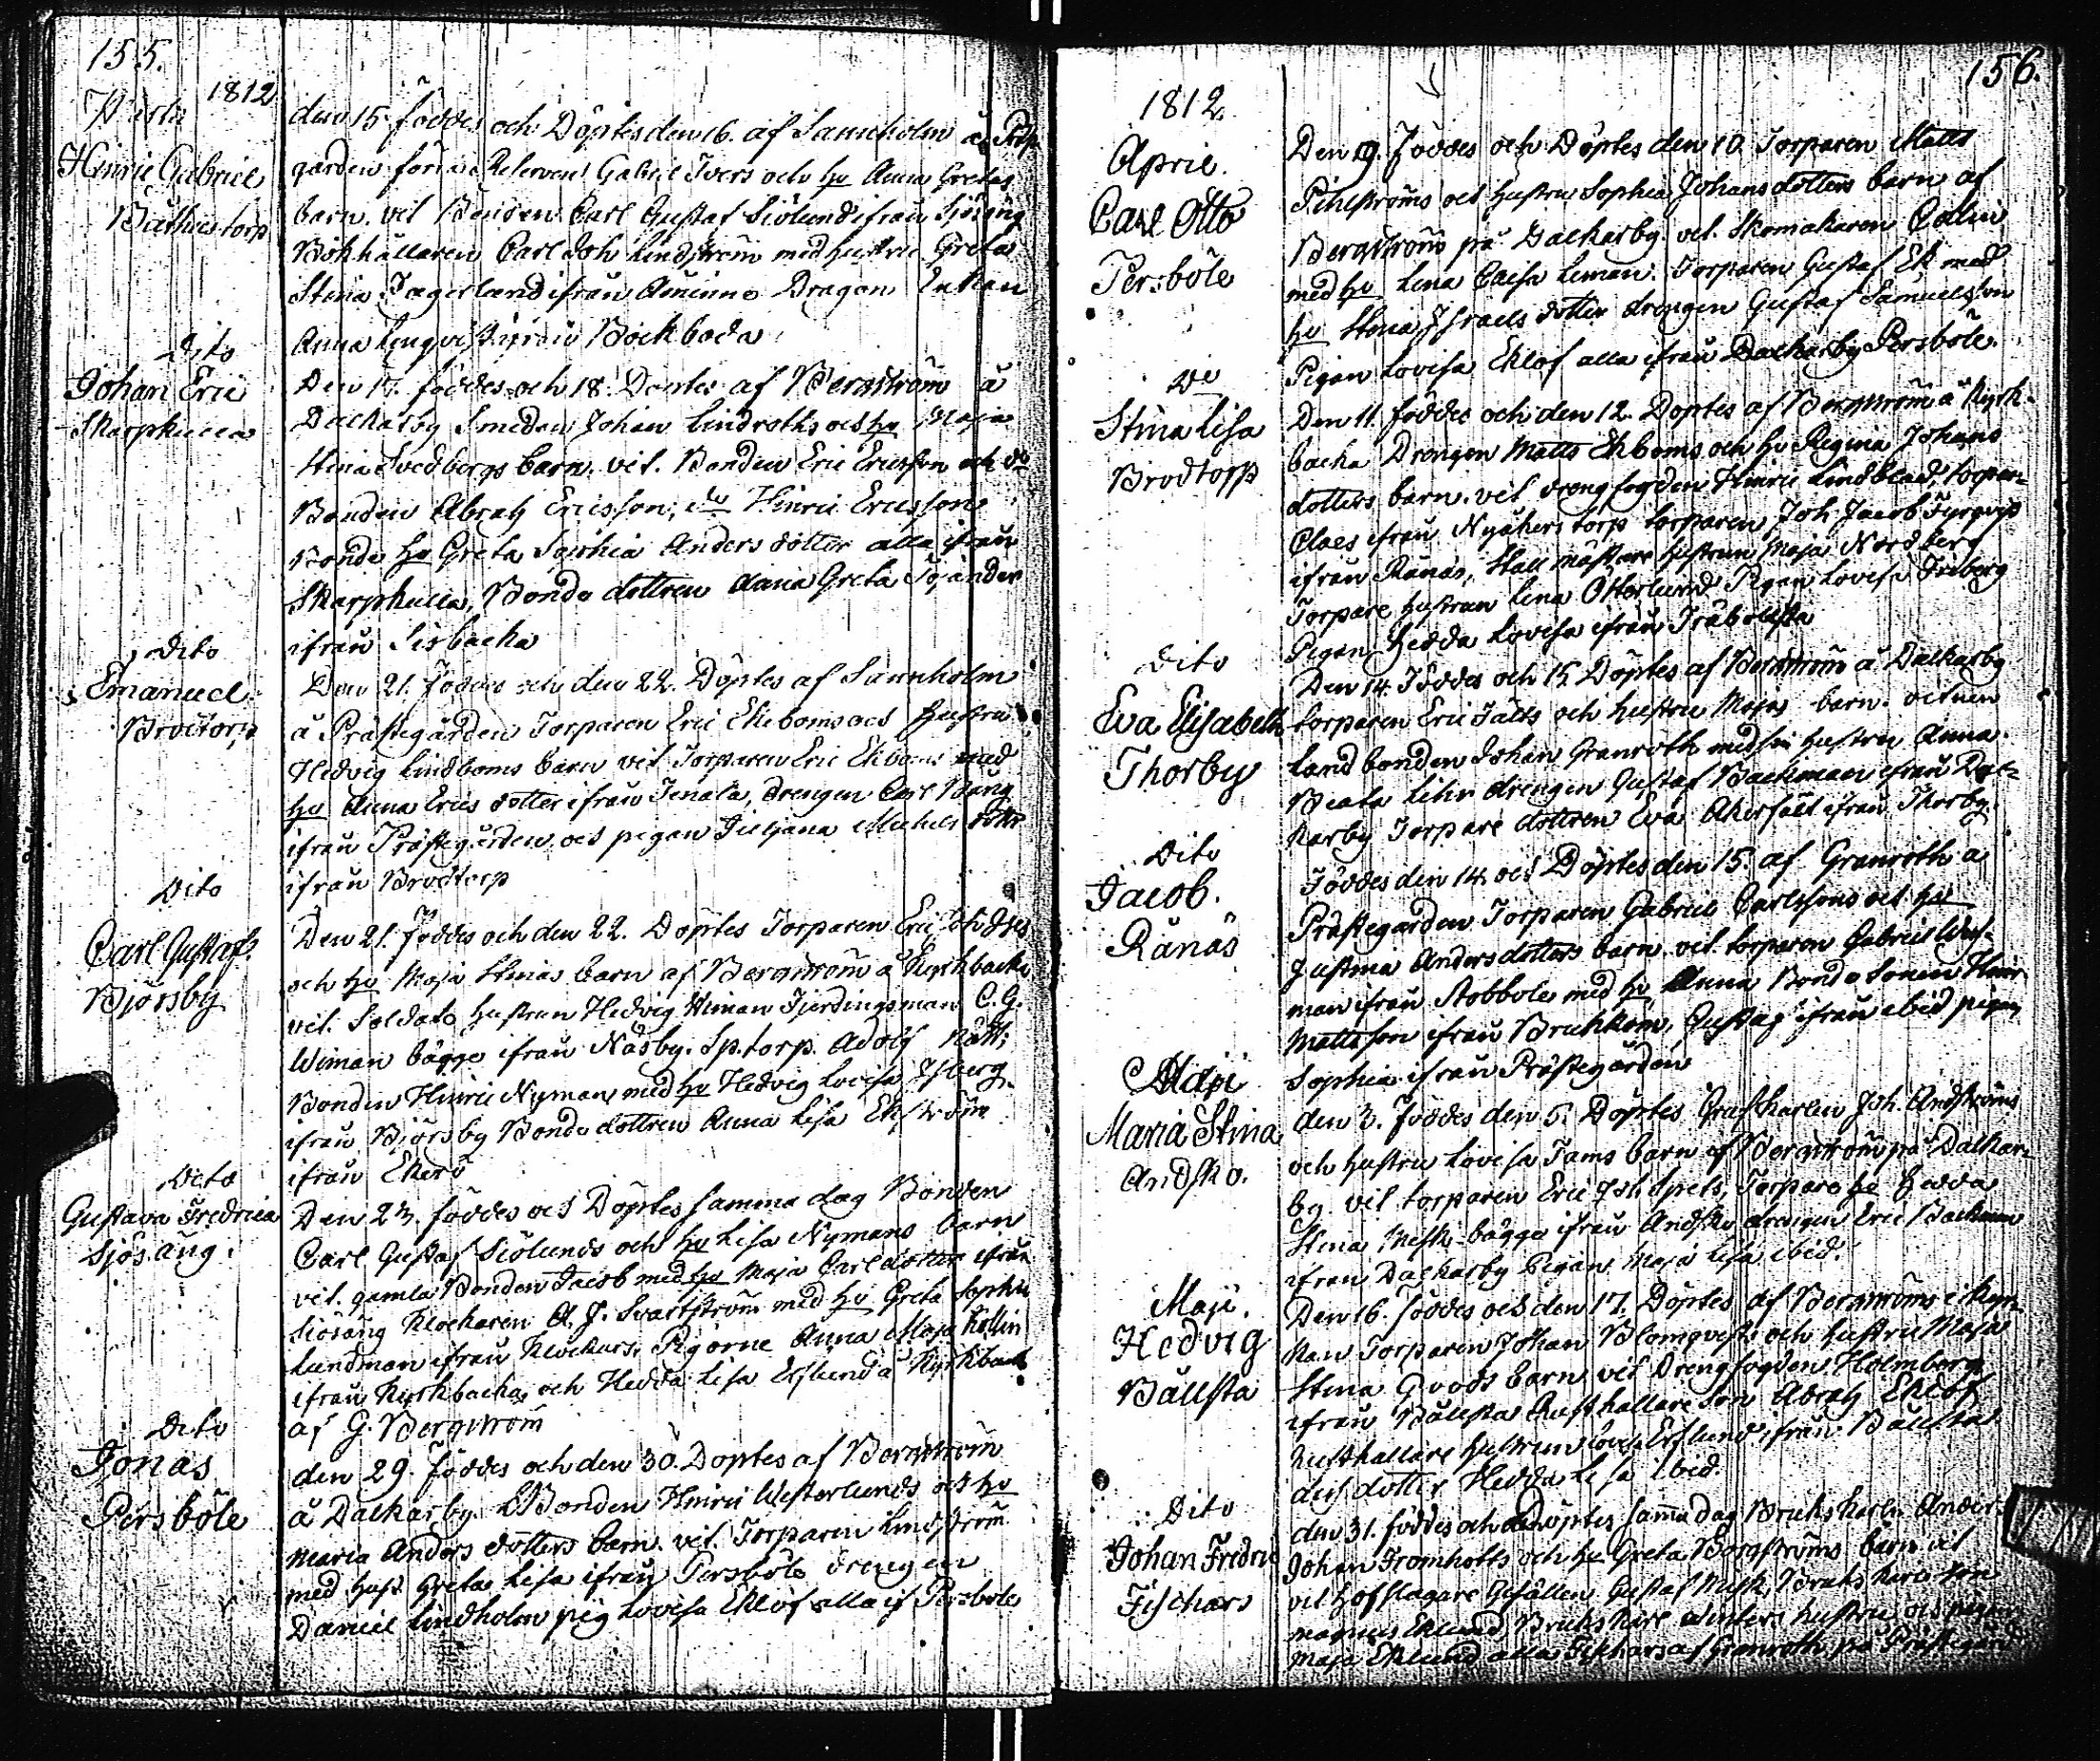 155.
1812
Hinric Gabriel
den 15. föddes och Döptes den 16. af Sannholm å
gården Gabriel Ivers och hu Anna Gretas
barn. vit. Bonden Carl Gustaf Siölund ifrån Sjösäng
Bokhållaren Carl Joh Lindström med hustru Greta
Stina Jagerland ifrån Åminne Dragon Enkan
Anna Lengvist ifrån Böckboda
Dito
Johan Eric
Skarpkulla
Den 17. föddes och 18. Döptes af Bergström å
Dalkarby Smeden Johan Lindroths och hu Maja
Stina Svedbergs barn. vit. Bonden Eric Ericsson och do
Bonden Abrah Ericsson, do Hinric Ericsson
Bonde hu Greta Sophia Anders dotter alla ifrån
Skarpkulla, Bonde dottren Anna Greta
ifrån Sisbacka
Dito
Emanuel
Brodtorp
Den 21. föddes och den 22. Döptes af Sannholm
å Prästegården Torparen Eric Ekeboms och hustru
Hedvig Lindboms barn vit Torparen Eric Ekbom med
hu Anna Erics dotter ifrån Tenala, drengen Carl Bäng
ifrån Prästegården och pigan Juliana Michels dotter
ifrån Brodtorp
Dito
Carl Gustaf
Björsby
Den 21. föddes och den 22. Döptes Torparen Eric Joh
och hu Maja Stinas barn af Bergström å Kyrkbacka
vit. Soldats hustrun Hedvig Wiman Fjerdingsman C. G.
Wiman bägge ifrån Näsby. Sp.torp. Adolf Nätt,
Bonden Hinric Nyman med hu Hedvig Lovisa Isberg
ifrån Björsby Bonde dottren Anna Lisa Ekström
ifrån Ekerö
Dito
Gustava Fredrica
Sjösäng.
Den 23. föddes och Döptes samma dag Bonden
Carl Gustaf Siölunds och hu Lisa Nymans barn
vit. gamla Bonden Jacob med hu Maja Carldotter ifrån
Siösäng Klockaren A. J. Svartström med hu Greta Sophia
Lundman ifrån Klockars, Pigorne Anna Maja Kollin
ifrån Kyrkbacka och Hedda Lisa Esslund å Kyrkbacka
af G. Bergström
Dito
Jonas
Persböle
den 29. föddes och den 30. Döptes af Bergström
å Dalkarby Bonden Hinric Westerlunds och hu
Maria Anders dotters barn. vit. Torparen Lindström
med hust Greta Lisa ifrån Persböle drengen
Daniel Lindholm pig Lovisa Eklöf alla if Persböle
156.
1812.
April.
Carl Otto
Persböle
Den 9. föddes och Döptes den 10. Torparen Matts
Pihlströms och hustru Sophia Johansdotters barn af
Bergström på Dalkarby. vit. Skomakaren Collin
med hu Lena Caisa Leman. Torparen Gustaf Ek med
hu Stina Israels dotter drengen Gustaf Samuelsson
Pigan Lovisa Eklöf alla ifrån Dalkarby Persböle.
Do
Stina Lisa
Brodtorp
Den 11. föddes och den 12. Döptes af Bergström å Kyrk-
backa Drengen Matts Ekboms och hu Regina Johans
dotters barn. vit drengfogden Hinric Lindblad,
Claes ifrån Nyåkers torp torparen Joh Jacob
ifrån Rånäs, Stall mästare hustrun Maja Nordberg
Torpare hustrun Lena Otterlund Pigan Lovisa Friberg
Pigan Hedda Lovisa ifrån Träbollsta
Dito
Eva Elisabeth
Thorby
Den 14. Föddes och 15 Döptes af Bergström å Dalkarby
torparen Eric Fälts och hustru Majas barn. vitnen
Landbonden Johan Granroth med sin hustru Anna
Beata Lihr drengen Gustaf Backman ifrån Dal-
karby Torpare dottren Eva Åkerfält ifrån Thorby.
Dito
Jacob.
Rånäs
Föddes den 14. och Döptes den 15. af Granroth å
Prästegården Torparen Gabriel Carlssons och hu
Justina Andersdotters barn. vit. torparen Gabriel
man ifrån Stobbole med hu Anna Bonde Sonen Hinr
Mattsson ifrån Gustaf ifrån ibid pigan
Sophia ifrån Prästegården
Maji
Maria Stina
Andsko.
den 3. föddes den 5. Döptes Joh. Andströms
och hustru Lovisa Tams barn af Bergström på Dalkar-
by. vit torparen Eric Joh Spets, Torpare hu Hedda
Stina Mesk. bägge ifrån Andsko drengen Eric Backman
ifrån Dalkarby Pigan Maja Lisa ibid.
Maji.
Hedvig
Bällsta
Den 16. föddes och den 17. Döptes af Bergström i Kyr-
kan Torparen Johan Blomqvists och hustru Maja
Stina Qvods barn vit Drengfogden Holmberg
ifrån Bällsta Rusthållare son Abrah Eklöf
Rusthållare hustrun Lovisa Esslund ifrån Bällsta
des dotter Hedda Lisa ibid.
Dito
Johan Fredric
Fischars
den 31. föddes och Döptes samma dag Brukskarln Anders
Johan Fromholts och hu Greta Bornströms barn vit
vit Hofslagare Gesällen Gustaf Mesk, Bruks karls son
Magnus Eklund Bruks karl Winters hustru och pigan
Maja Eklund alla Fiskhars af Granroth på Prästegård